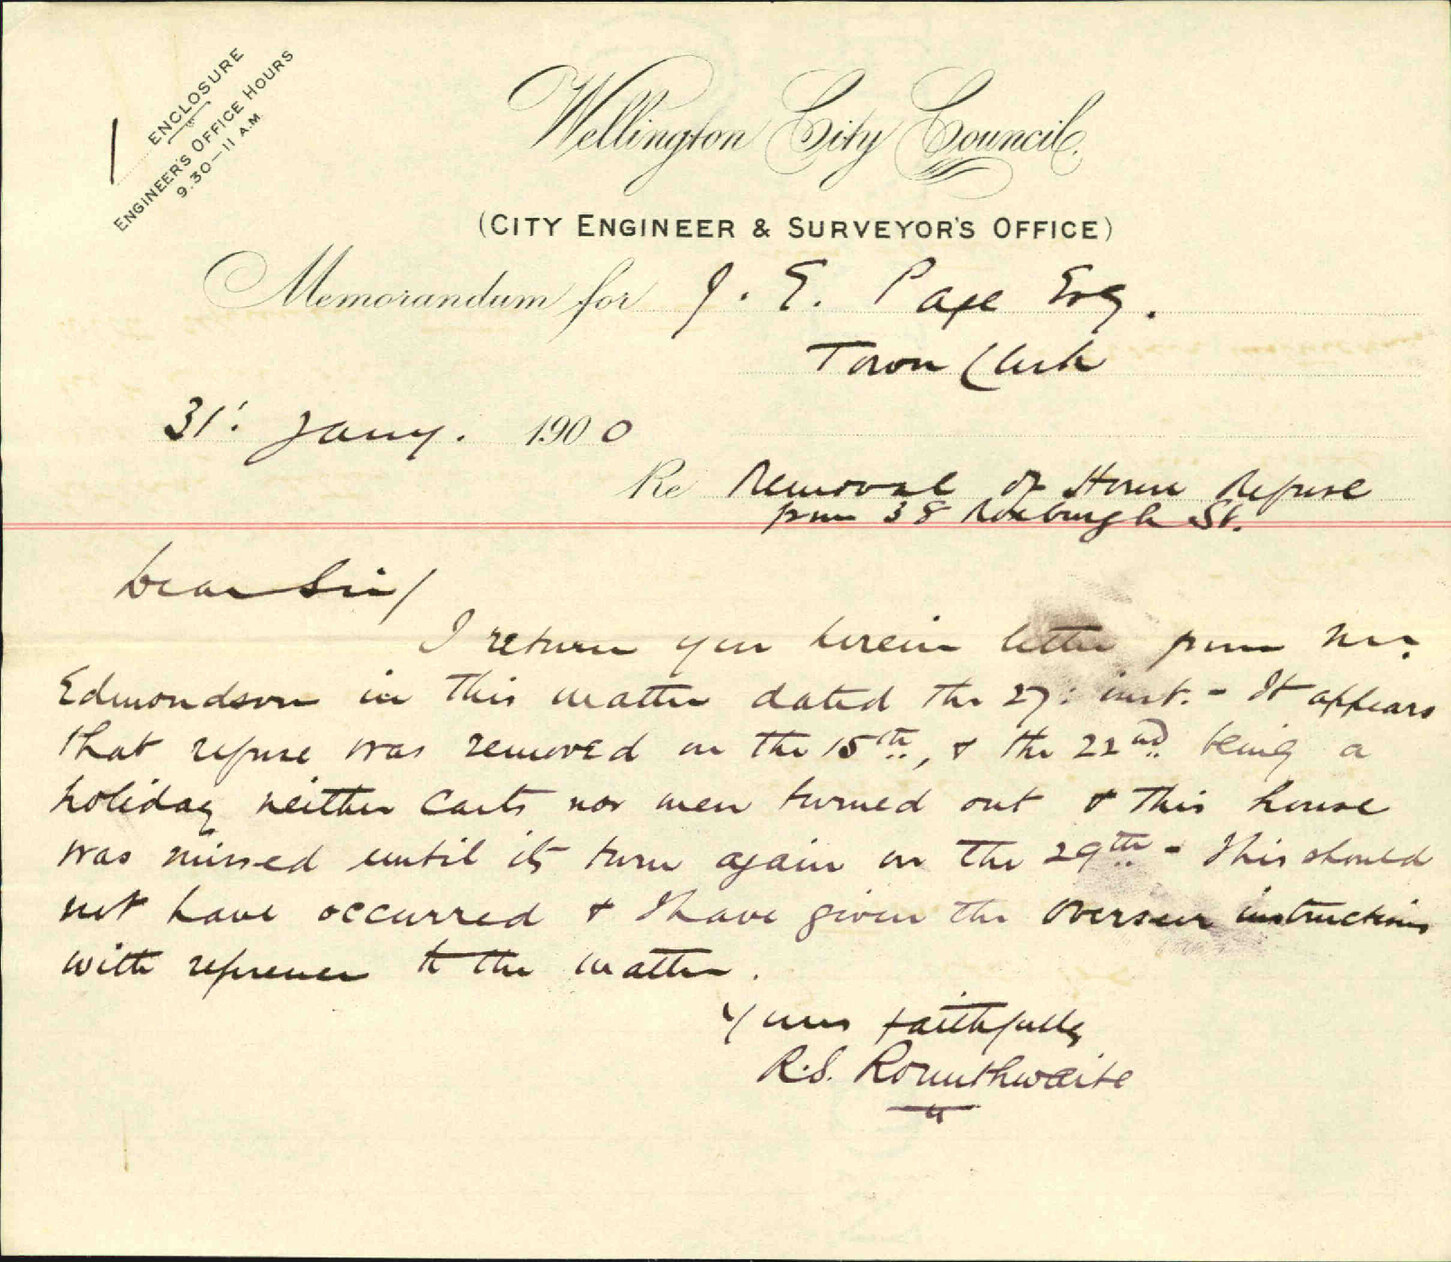 1 ENCLOSURE
ENGINEER'S OFFICE HOURS
9.30—11 A.M
Wellington City Council.
(CITY ENGINEER & SURVEYOR'S OFFICE)
Memorandum for J. E. Page Esq.
Town Clerk
31: Jany. 1900
Re Removal of House Refuse
from 38 Roxburgh St.
Dear Sir/
I return you herein letter from Mr.
Edmondson in this matter dated the 27: inst. - It appears
that refuse was removed on the 15th, & the 22nd being a
holiday neither carts nor men turned out & this house
was missed until its turn again on the 29th - This should
not have occurred & I have given the Overseer instructions
with reference to the matter.
Yours faithfully
R.S. Rounthwaite